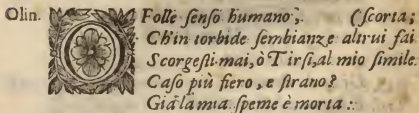 Olin. O Folle ſenſo humano; (ſcorta;
Ch'in torbide ſembianze altrui fai
Scorgeſti mai, ò Tirſi, al mio ſimile
Caſo più fiero, e ſtrano?
Già la mia ſpeme è morta: